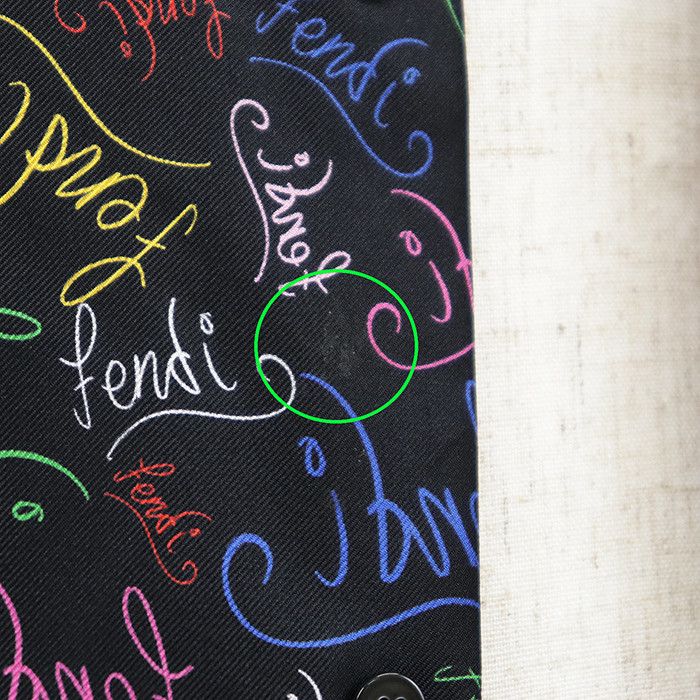 fendi
fendi
fendi
fendi
fendi
fendi
fendi
fendi